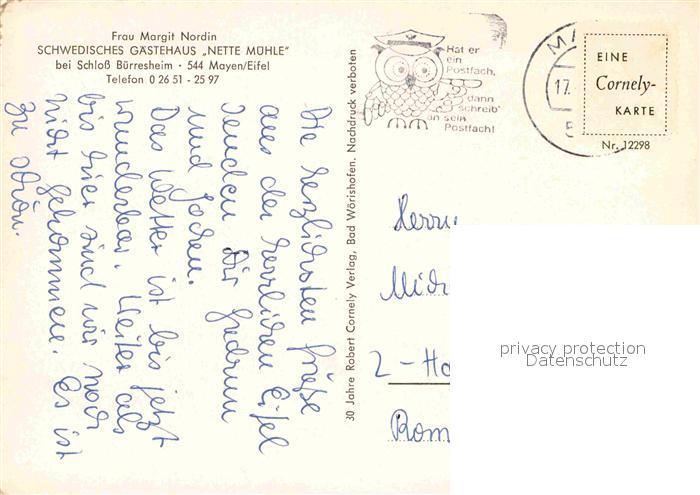 Frau Margit Nordin
SCHWEDISCHES GÄSTEHAUS „NETTE MÜHLE"
bei Schloß Bürresheim · 544 Mayen/Eifel
Telefon 0 26 51 - 25 97
Die herzlichsten Grüße
aus der herrlichen Eifel
senden Dir Gudrun
und Jochen.
Das Wetter ist bis jetzt
wunderbar. Weiter als
bis hier sind wir noch
nicht gekommen. Es ist
zu schön.
30 Jahre Robert Cornely Verlag, Bad Wörishofen. Nachdruck verboten
Hat er
ein
Postfach,
dann
schreib'
an sein
Postfach!
MA
17.
5
EINE
Cornely-
KARTE
Nr. 12298
Herrn
Mich
2-Ha
Rom
privacy protection
Datenschutz